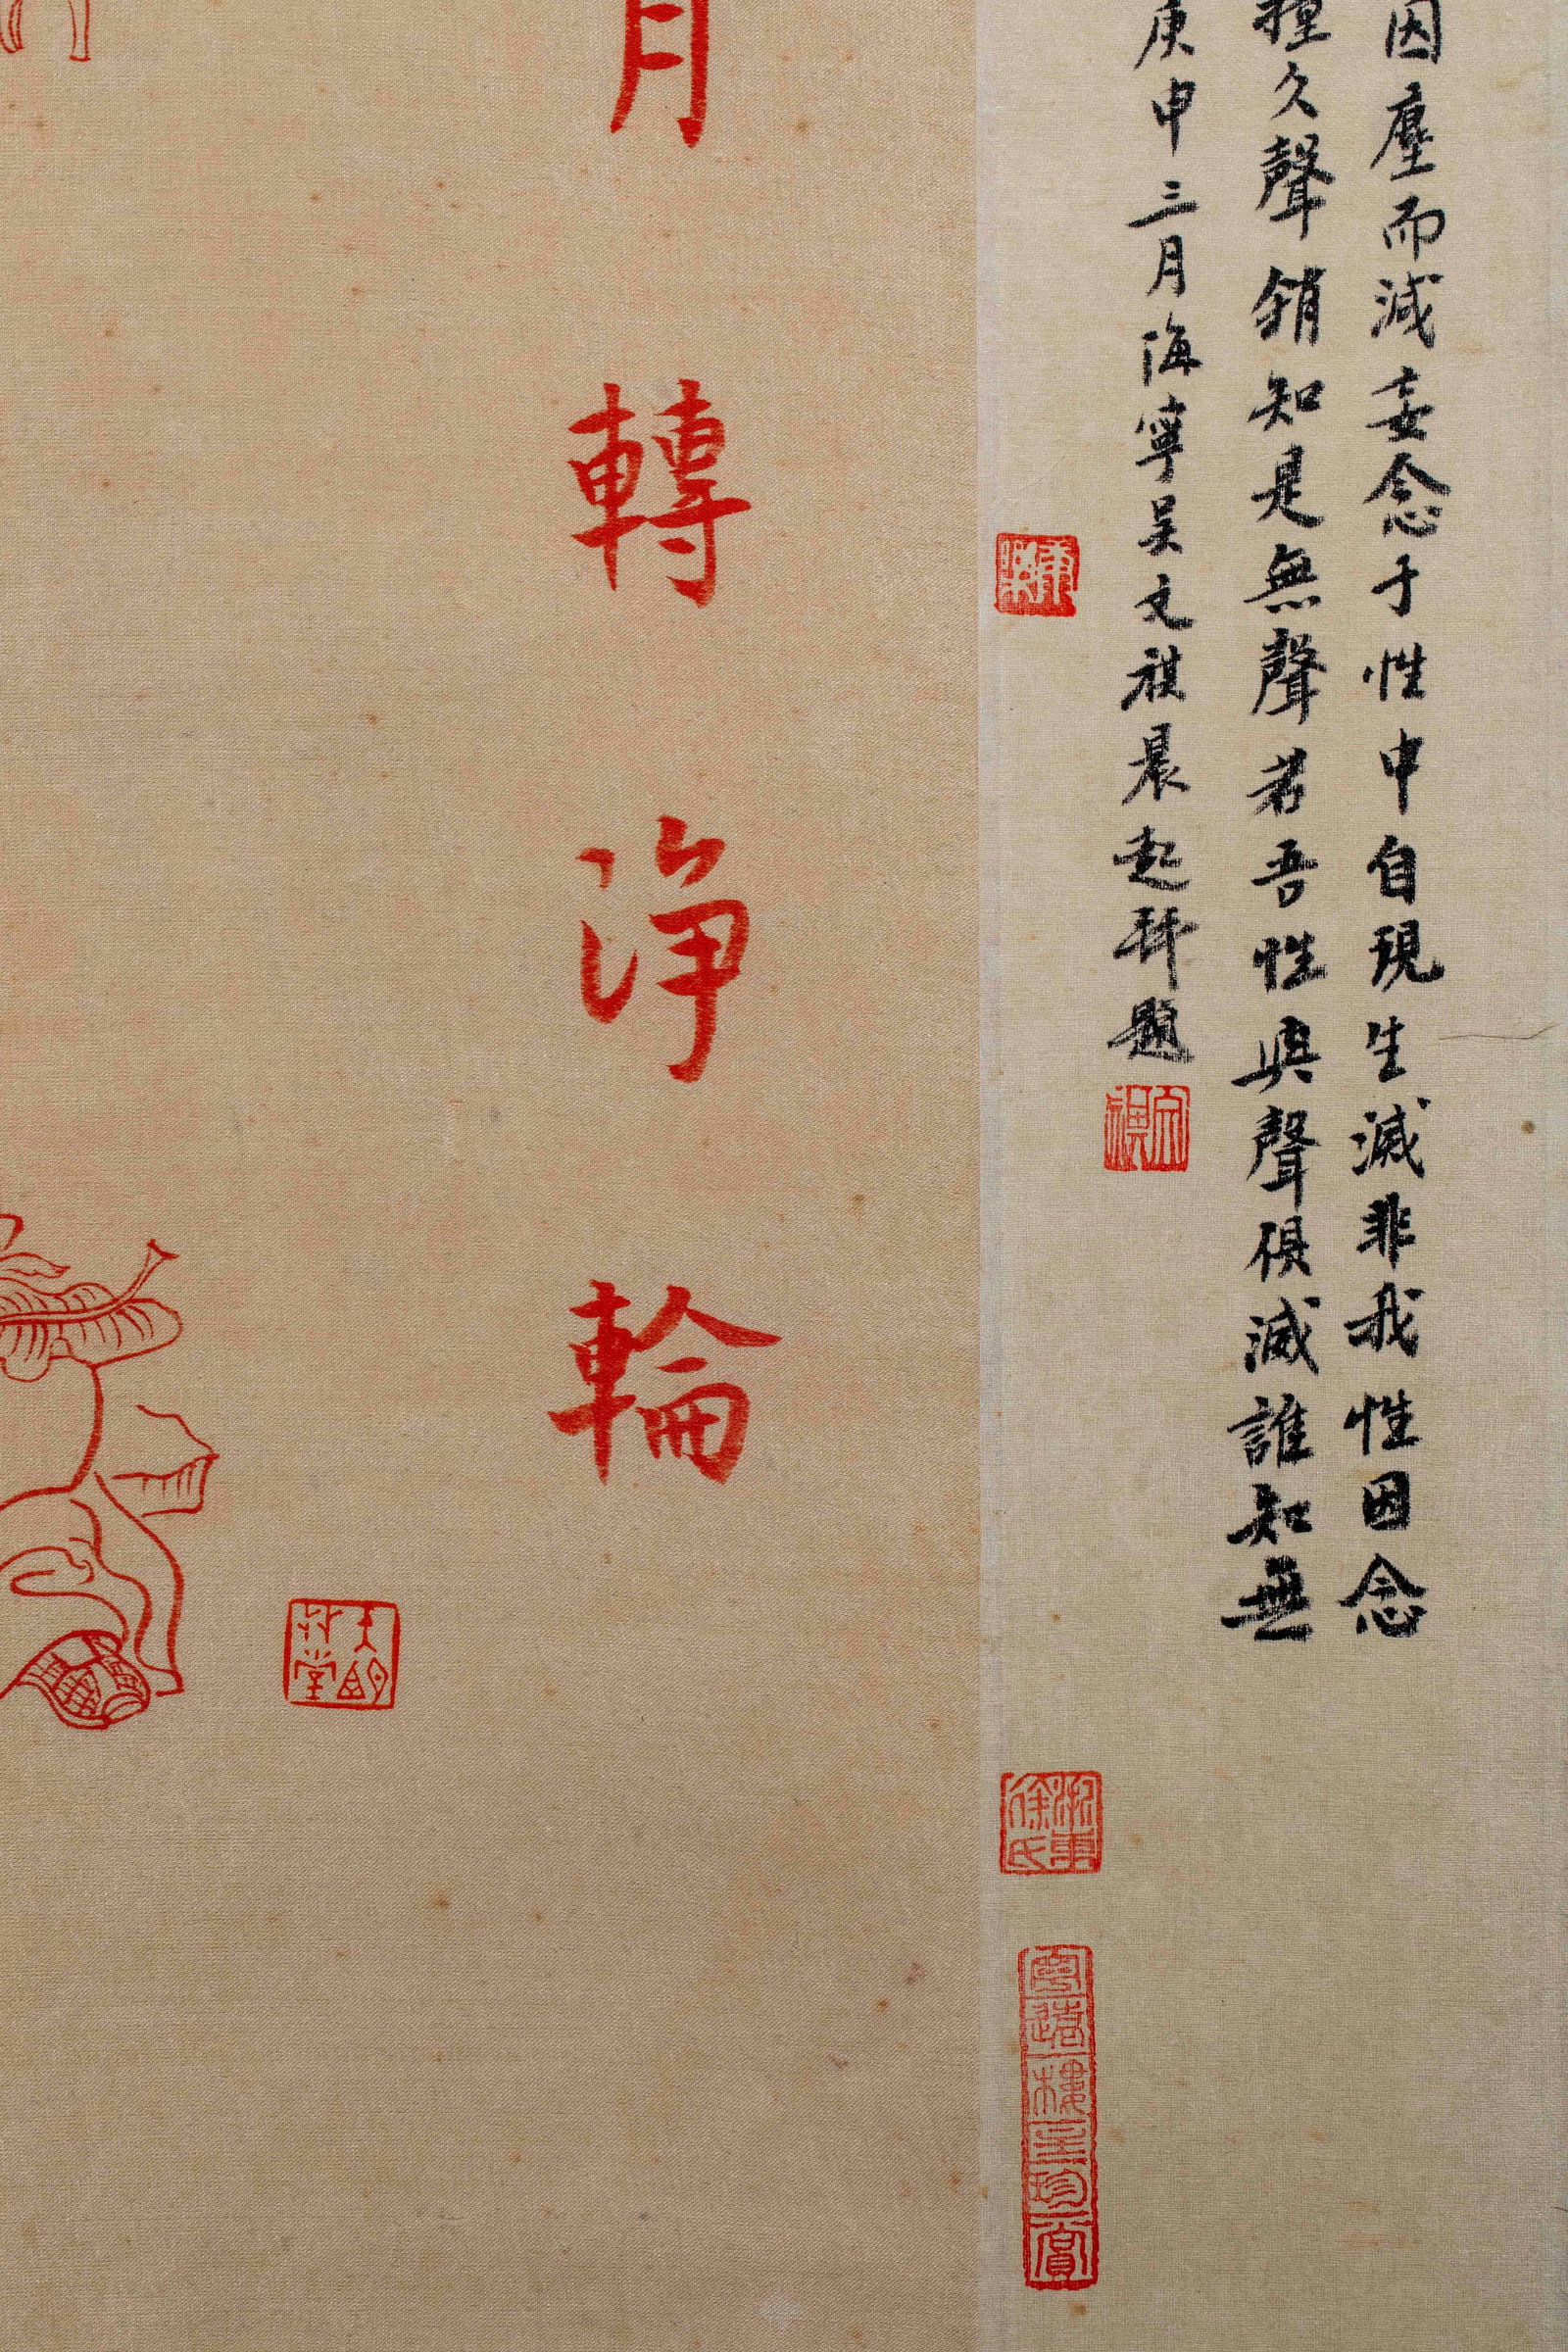 因塵而減妄念于性中自現生滅非我性因念
久聲銷知是無聲若吾性與聲俱滅誰知無
庚申三月海寧吳文祺晨起拜題
浙東徐氏
月轉浄輪